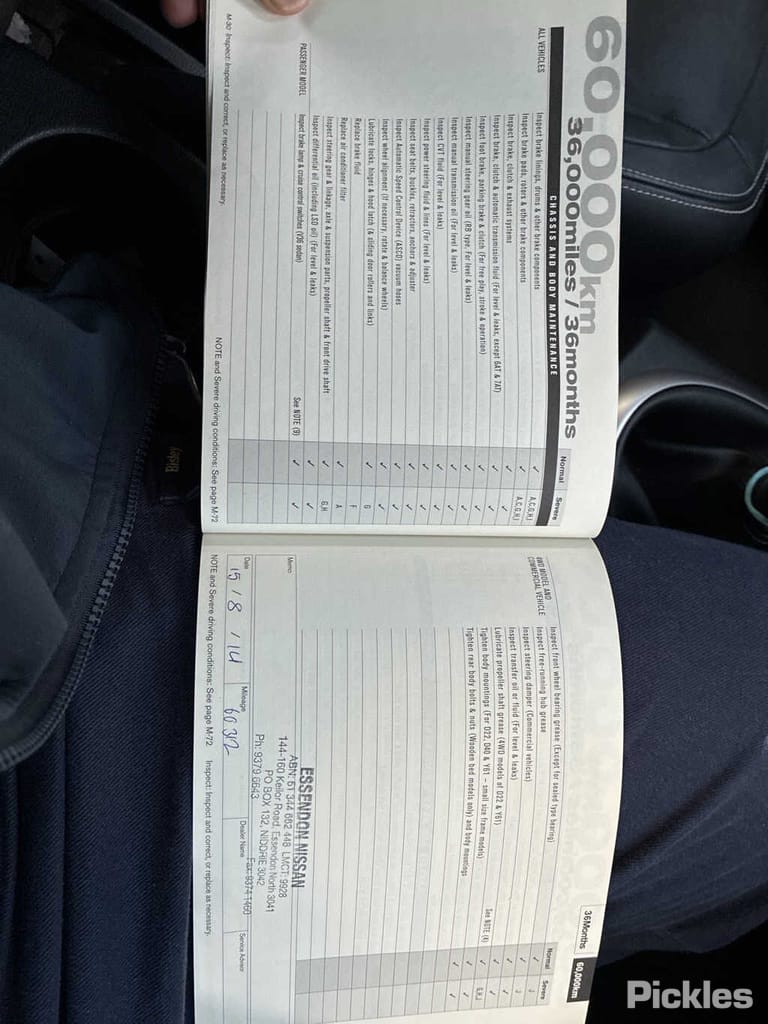 60,000km
36,000miles / 36months
CHASSIS AND BODY MAINTENANCE
Normal Severe
ALL VEHICLES
Inspect brake linings, drums & other brake components ✓ A,C,G,H,I
Inspect brake pads, rotors & other brake components ✓ A,C,G,H,I
Inspect brake, clutch & exhaust systems ✓ ✓
Inspect brake, clutch & automatic transmission fluid (For level & leaks, except 6AT & 7AT) ✓ ✓
Inspect foot brake, parking brake & clutch (For free play, stroke & operation) ✓ ✓
Inspect manual steering gear oil (RB type, For level & leaks) ✓ ✓
Inspect manual transmission oil (For level & leaks) ✓ ✓
Inspect CVT fluid (For level & leaks) ✓ ✓
Inspect power steering fluid & lines (For level & leaks) ✓ ✓
Inspect seat belts, buckles, retractors, anchors & adjuster ✓ ✓
Inspect Automatic Speed Control Device (ASCD) vacuum hoses ✓ ✓
Inspect wheel alignment (If necessary, rotate & balance wheels) ✓ ✓
Lubricate locks, hinges & hood latch (& sliding door rollers and links) ✓ G
Replace brake fluid F
Replace air conditioner filter ✓ A
Inspect steering gear & linkage, axle & suspension parts, propeller shaft & front drive shaft ✓ G,H
Inspect differential oil (including LSD oil) (For level & leaks) ✓ ✓
PASSENGER MODEL
Inspect brake lamp & cruise control switches (V36 sedan) See NOTE (9) ✓ ✓
M-30 Inspect: Inspect and correct, or replace as necessary.
NOTE and Severe driving conditions: See page M-72
36Months 60,000km
Normal Severe
4WD MODEL AND
COMMERCIAL VEHICLE
Inspect front wheel bearing grease (Except for sealed type bearing)
Inspect free-running hub grease
Inspect steering damper (Commercial vehicles)
Inspect transfer oil or fluid (For level & leaks)
Lubricate propeller shaft grease (4WD models of D22 & Y61)
Tighten body mountings (For D22, D40 & Y61 – small size frame models) See NOTE (4)
Tighten rear body bolts & nuts (Wooden bed models only) and body mountings
Memo
ESSENDON NISSAN
ABN: 51 344 662 448 LMCT: 9928
144-160 Keilor Road, Essendon North 3041
PO BOX 132, NIDDRIE 3042
Ph: 9379 6643 Fax: 9374 1460
Date 15 / 8 / 14 Mileage 60312 Dealer Name Service Advisor
NOTE and Severe driving conditions: See page M-72 Inspect: Inspect and correct, or replace as necessary.
Bisley
Pickles